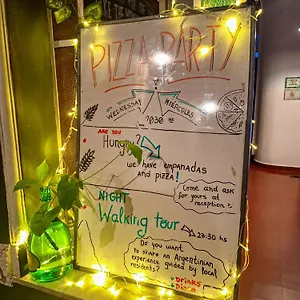 PIZZA PARTY
WEDNESDAY
MIÉRCOLES
ARE YOU
Hungry?
we have EMPANADAS
AND PIZZA!
Come and ask
for yours at
reception!
NIGHT
Walking tour
Do you want
to share an Argentinian
experience guided by local
residents?
DRINKS
Disco